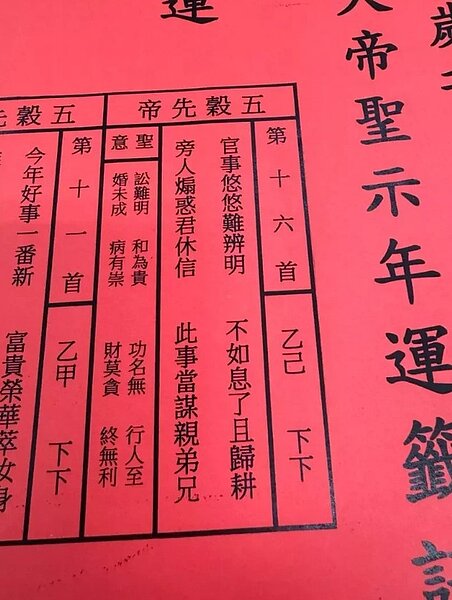 歲
帝聖示年運籤
運
五穀先帝
第十六首 乙己 下下
官事悠悠難辨明 不如息了且歸耕
旁人煽惑君休信 此事當謀親弟兄
聖意
訟難明 和為貴 功名無 行人至
婚未成 病有祟 財莫貪 終無利
五穀先
第十一首 乙甲 下下
今年好事一番新 富貴榮華萃汝身